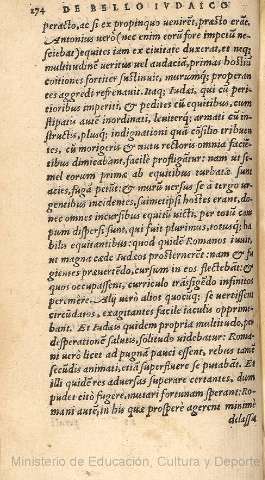 174 DE BELLO IVDAICO
peracto, ac si ex propinquo venirēt, præsto erāt.
Antonius verò (nec enim eorū fore impetū ne-
sciebat) equites iam ex ciuitate duxerat, et neq;
multitudinē veritus vel audaciā, primas hostiū
coitiones fortiter sustinuit, murumq; properan
tes aggredi refrenauit. Itaq; Iudæi, qui cū peri-
tioribus imperiti, & pedites cū equitibus, cum
stipatis autē inordinati, leuiterq; armati cū in-
structis, plusq; indignationi quā cōsilio tribuen
tes, cū morigeris & nutu rectoris omnia facien
tibus dimicabant, facilè profligātur: nam ut se-
mel eorum prima ab equitibus turbata sunt
acies, fugā petūt: & murū versus se à tergo ur-
gentibus incidentes, suimetipsi hostes erant, do-
nec omnes incursibus equitū victi, per totū cam
pum dispersi sunt, qui fuit plurimus, totusq; ha
bilis equitantibus: quod quidē Romanos iuuit,
ut magna cæde Iudæos prosternerēt: nam & fu
gientes præuertēdo, cursum in eos flectebāt: &
quos occupassent, curriculo trāsfigēdo infinitos
peremêre. Alij verò alios quocūq; se vertissent
circūdatos, exagitantes facile iaculis opprime-
bant. Et Iudæis quidem propria multitudo, per
desperationē salutis, solitudo videbatur: Roma-
ni verò licet ad pugnā pauci essent, rebus tamē
secūdis animati, etiā superfuere se putabāt. Et
illi quidē res aduersas superare certantes, dum
pudet citò fugere, mutari fortunam sperant: Ro-
mani autē, in his quæ prosperè agerent minimè
delassa
Ministerio de Educación, Cultura y Deporte